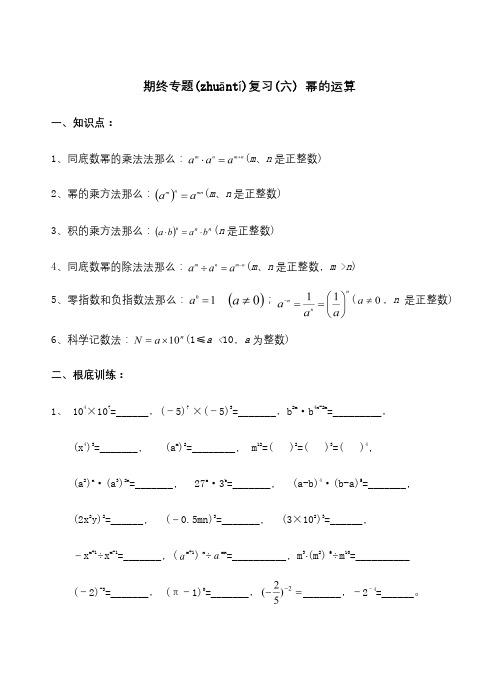 期终专题(zhuāntí)复习(六) 幂的运算
一、知识点：
1、同底数幂的乘法法那么：a^m·a^n=a^{m+n}(m、n是正整数)
2、幂的乘方法那么：(a^m)^n=a^{mn}(m、n是正整数)
3、积的乘方法那么：(a·b)^n=a^n·b^n(n是正整数)
4、同底数幂的除法法那么：a^m÷a^n=a^{m-n}(m、n是正整数，m >n)
5、零指数和负指数法那么：a^0=1 (a≠0)；a^{-n}=1/a^n=(1/a)^n(a≠0，n 是正整数)
6、科学记数法：N=a×10^n(1≤a <10，a为整数)
二、根底训练：
1、 10^4×10^7=______，(﹣5)^7 ×(﹣5)^3=_______，b^{2m}·b^{4n-2m}=_________，
(x^4)^3=_______， (a^m)^2=________， m^{12}=( )^2=( )^3=( )^4，
(a^2)^n·(a^3)^{2n}=_______， 27^a·3^b=_______， (a-b)^4·(b-a)^5=_______，
(2x^2y)^2=______， (﹣0.5mn)^3=_______， (3×10^2)^3=______，
﹣x^{n+1}÷x^{n-1}=_______，(a^{m+1})^n÷a^{mn}=__________，m^3·(m^2)^6÷m^{10}=__________
(﹣2)^{-3}=_______， (π﹣1)^0=_______，(-2/5)^{-2}=_______，﹣2^{-4}=______。